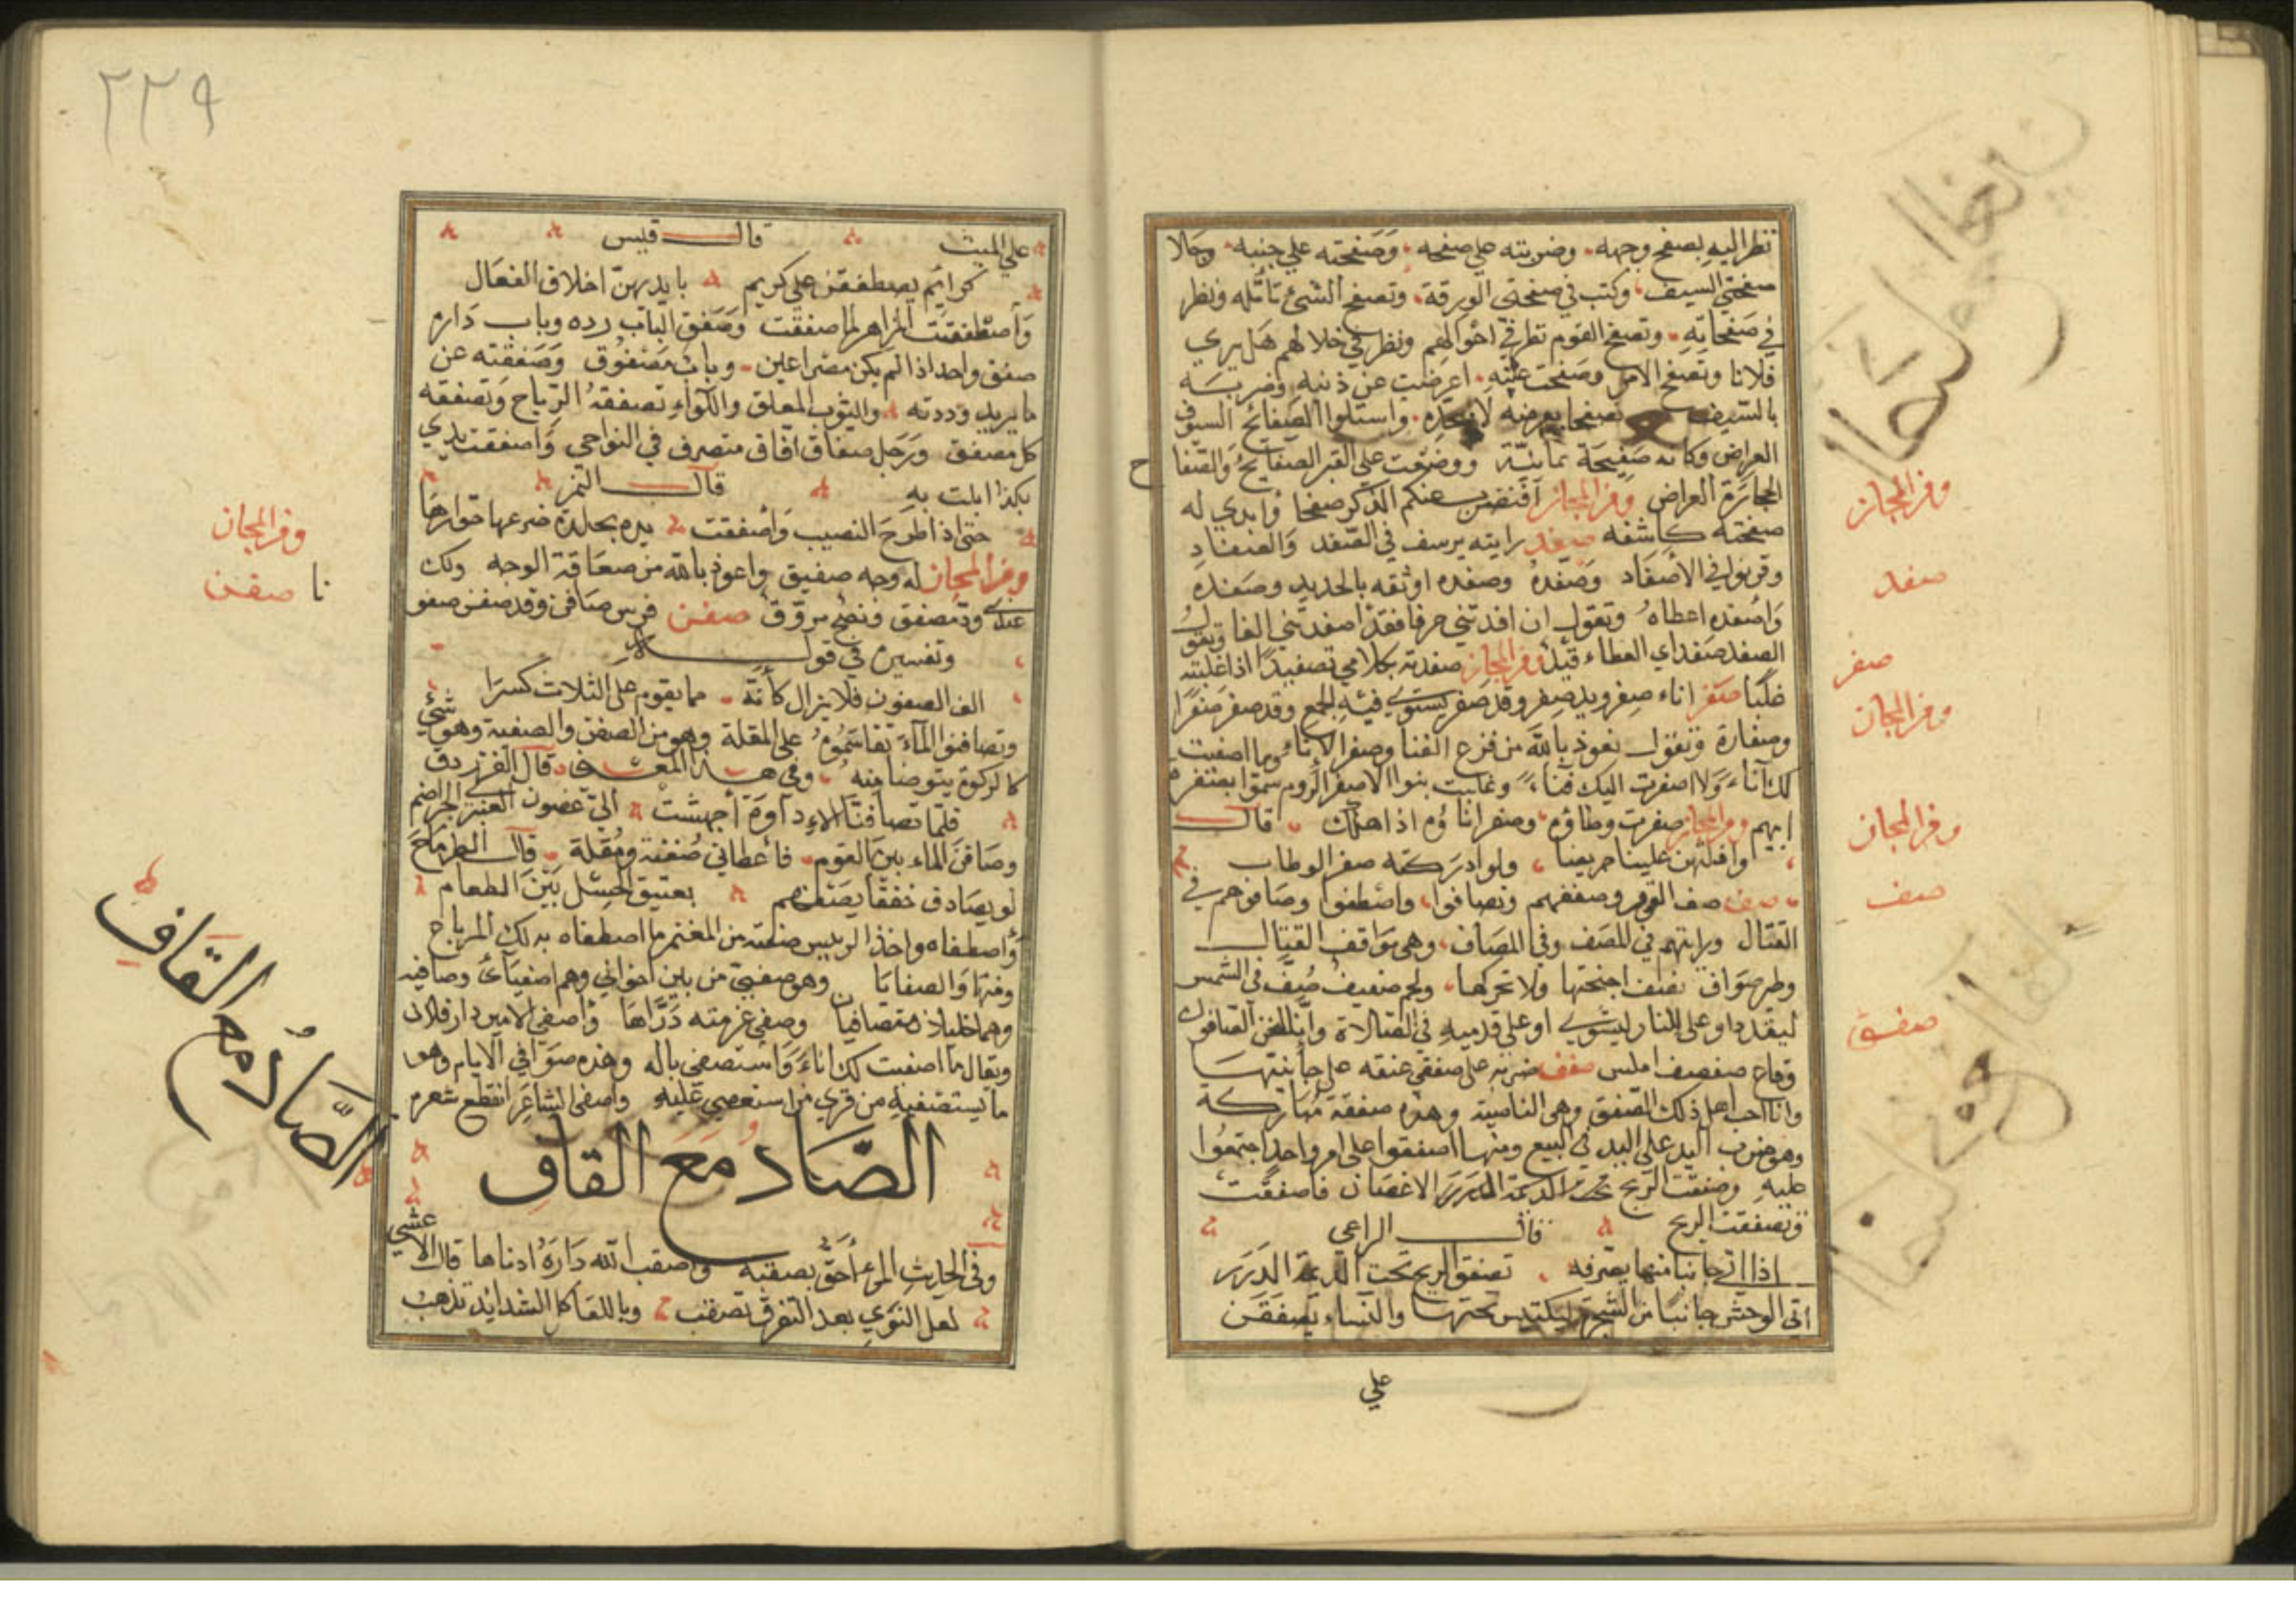 نظر اليه بصفح وجهه وضربته على صفحه وصفحته على جنبه وجلا
صفحتي السيف وكتب في صفحتي الورقة وتصفح الشئ تأمله ونظر
في صفحاته وتصفح القوم نظر في احوالهم ونظر في خلالهم هل يري
فلانا وتصفح الامر وصفحت عنه اعرضت عن ذنبه وضربته
بالسيف مصفحا بعرضه لا بحده واستلوا الصفائح السيوف
العراض وكانه صفيحة يمانية ووضعت على القبر الصفايح والصفا
ح
الحجارة العراض ومن المجاز افنضرب عنكم الذكر صفحا وابدي له
صفحته كاشفه صفد رايته يرسف في الصفد والصفاد
وقرنوا في الأصفاد وصفده وصفده اوثقه بالحديد وصفده
وأصفده اعطاه وتقول ان افدتني حرفا فقد اصفدتني الفا وتقول
الصفد صفد اي العطاء قيد ومن المجاز صفدته بكلامي تصفيدا اذا غلبته
صفر اناء صفر ويد صفر وقد صفر يستوي فيه الجمع وقد صفر صفرا
وصفارة وتقول نعوذ بالله من قزع الفنا وصفر الإناء وما اصغيت
لك اناء ولا اصفرت اليك فناء وغابت بنوا الاصفر الروم سموا بصفرة
ابيهم ومن المجاز صفرت وطاؤه وصفر اناؤه اذا هلك قال
وافلتهن علينا جريضا ولو ادركته صفر الوطاب
صف صف القوم وصففهم وتصافوا واصطفوا وصافوهم في
القتال ورايتهم في المصف وفي المصاف وهي مواقف القتال
وطير صواف تصف اجنحتها ولا تحركها ولحم صفيف صف في الشمس
ليقدد او على النار ليشوي او على قدميه في الصلاة وانا لنحن الصافون
وقاع صفصف املس صفق ضربه على صفقي عنقه على جانبيها
وانا احب اهل ذلك الصفق وهي الناحية وهذه صفقة مباركة
وهو ضرب اليد على اليد في البيع ومنها اصفقوا على امر واحد اجتمعوا
عليه وصفقت الريح الاغصان فاصفقت
وتصفقت الريح قال الراعي
اذا اتى جانبا منها يصرفه تصفق الريح تحت الديمة الدرر
اتى الوحش جانبا من الشجرة ليكتن تحتها والنساء يصفقن
على
ومن المجاز
صفد
صفر
ومن المجاز
ومن المجاز
صف
صفق
٢٢٩
على الميت قال قيس
كرائم يصطفقن على كريم بايديهن اخلاق الفعال
وأصطفقت المزاهر لما صفقت وصفق الباب رده وباب داره
صفق واحد اذا لم يكن مصراعين وباب مصفوق وصفقته عن
ما يريد رددته والثوب المعلق واللواء تصفقه الرياح وتصفقه
كل مصفق ورجل صفاق افاق متصرف في النواحي واصفقت يدي
بكذا ابلت به قال النمر
حتى اذا طرح النصيب وأصفقت يده بجلدة ضرعها حوارها
ومن المجاز له وجه صفيق واعوذ بالله من صفاقة الوجه ولك
عندي ود مصفق ونصح مروق صفن فرس صافن وقد صفن صفو
نا
وتفسيره في قوله
الف الصفون فلا يزال كأنه مما يقوم على الثلاث كسرا
وتصافنوا الماء تقاسموه على المقلة وهو من الصفن والصفنة وهو شئ
كالركوة يتوضأ منه وفي هذا المعنى قال الفرزدق
فلما تصافنا الاداوة أجهشت الى غضون العنبري الجراضم
وصافن الماء بين القوم فاعطاني صفنة ومقلة قال الطرماح
وأصطفاه واخذ الرييس صفيته من المغنم ما اصطفاه به لك المرباع
ومنها والصفايا وهو صفيي من بين اخواني وهم اصفيائ وصافيته
وهما خليلان متصافيان وصفي عزمته ذراها وأصفى الامير دار فلان
ويقال ما اصغيت لك اناء واستصفى ماله وهذه صوافي الايام وهو
ما يستصفيه من قرى من استعصى عليه واصفى الشاعر انقطع شعره
الصاد مع القاف
وفي الحديث المرء أحق بصقبه واصقب الله داره ادناها قال الاعشي
لعل النوي بعد التفرق تصقب وباللقا كل الشدايد تذهب
ومن المجاز
صفن
الصاد مع القاف